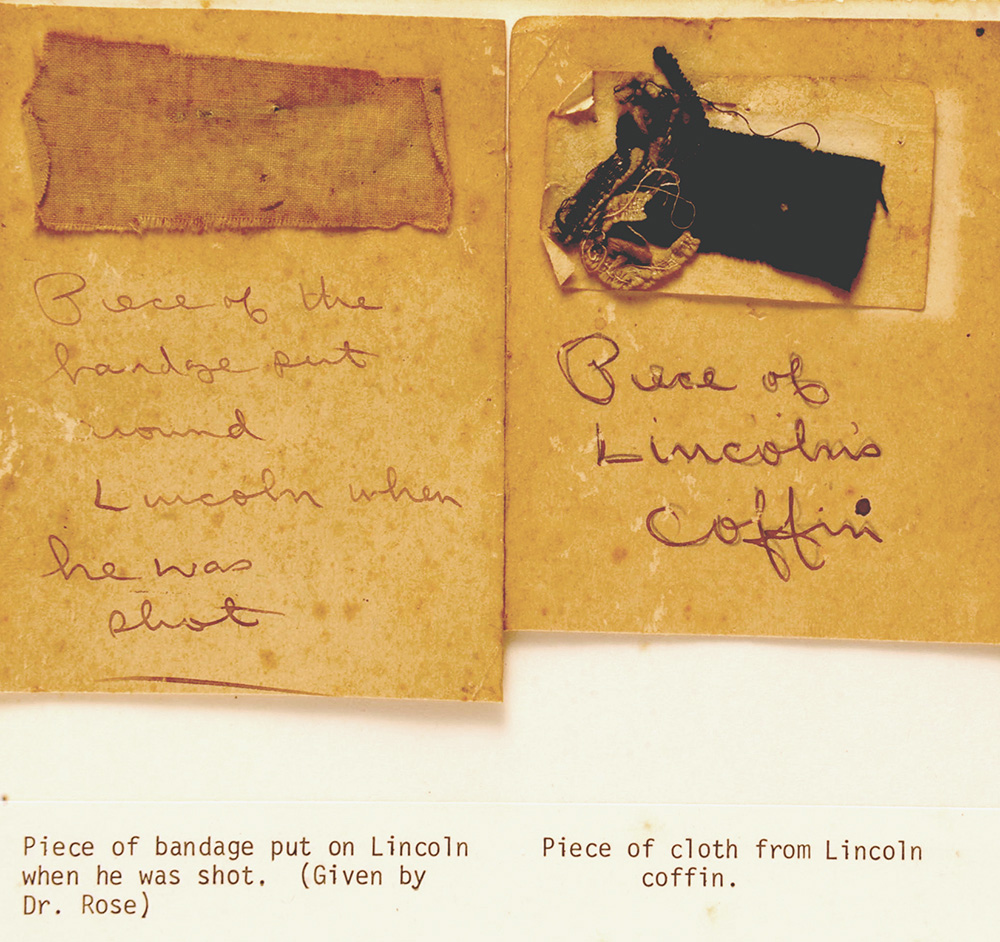 Piece of the
bandge put
round
Lincoln when
he was
shot
Piece of
Lincoln's
Coffin
Piece of bandage put on Lincoln
when he was shot. (Given by
Dr. Rose)
Piece of cloth from Lincoln
coffin.